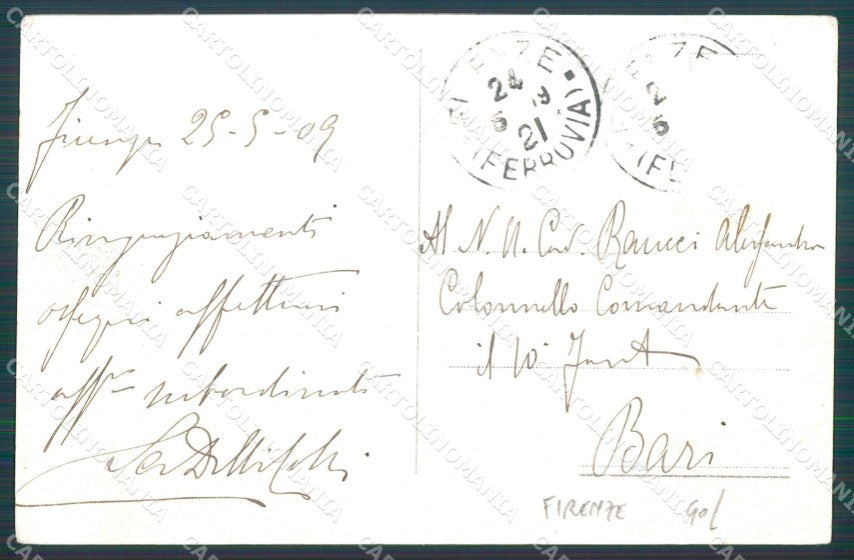 Firenze 25-5-09
Ringraziamenti
ossequi affettuosi
aff.mo subordinato
FIRENZE
24 5 9
21
(FERROVIA)
Al N. U. Cav. Ranieri Alessandro
Colonnello Comandante
il 10° Fant.
Bari
FIRENZE
CARTOLINOMANIA